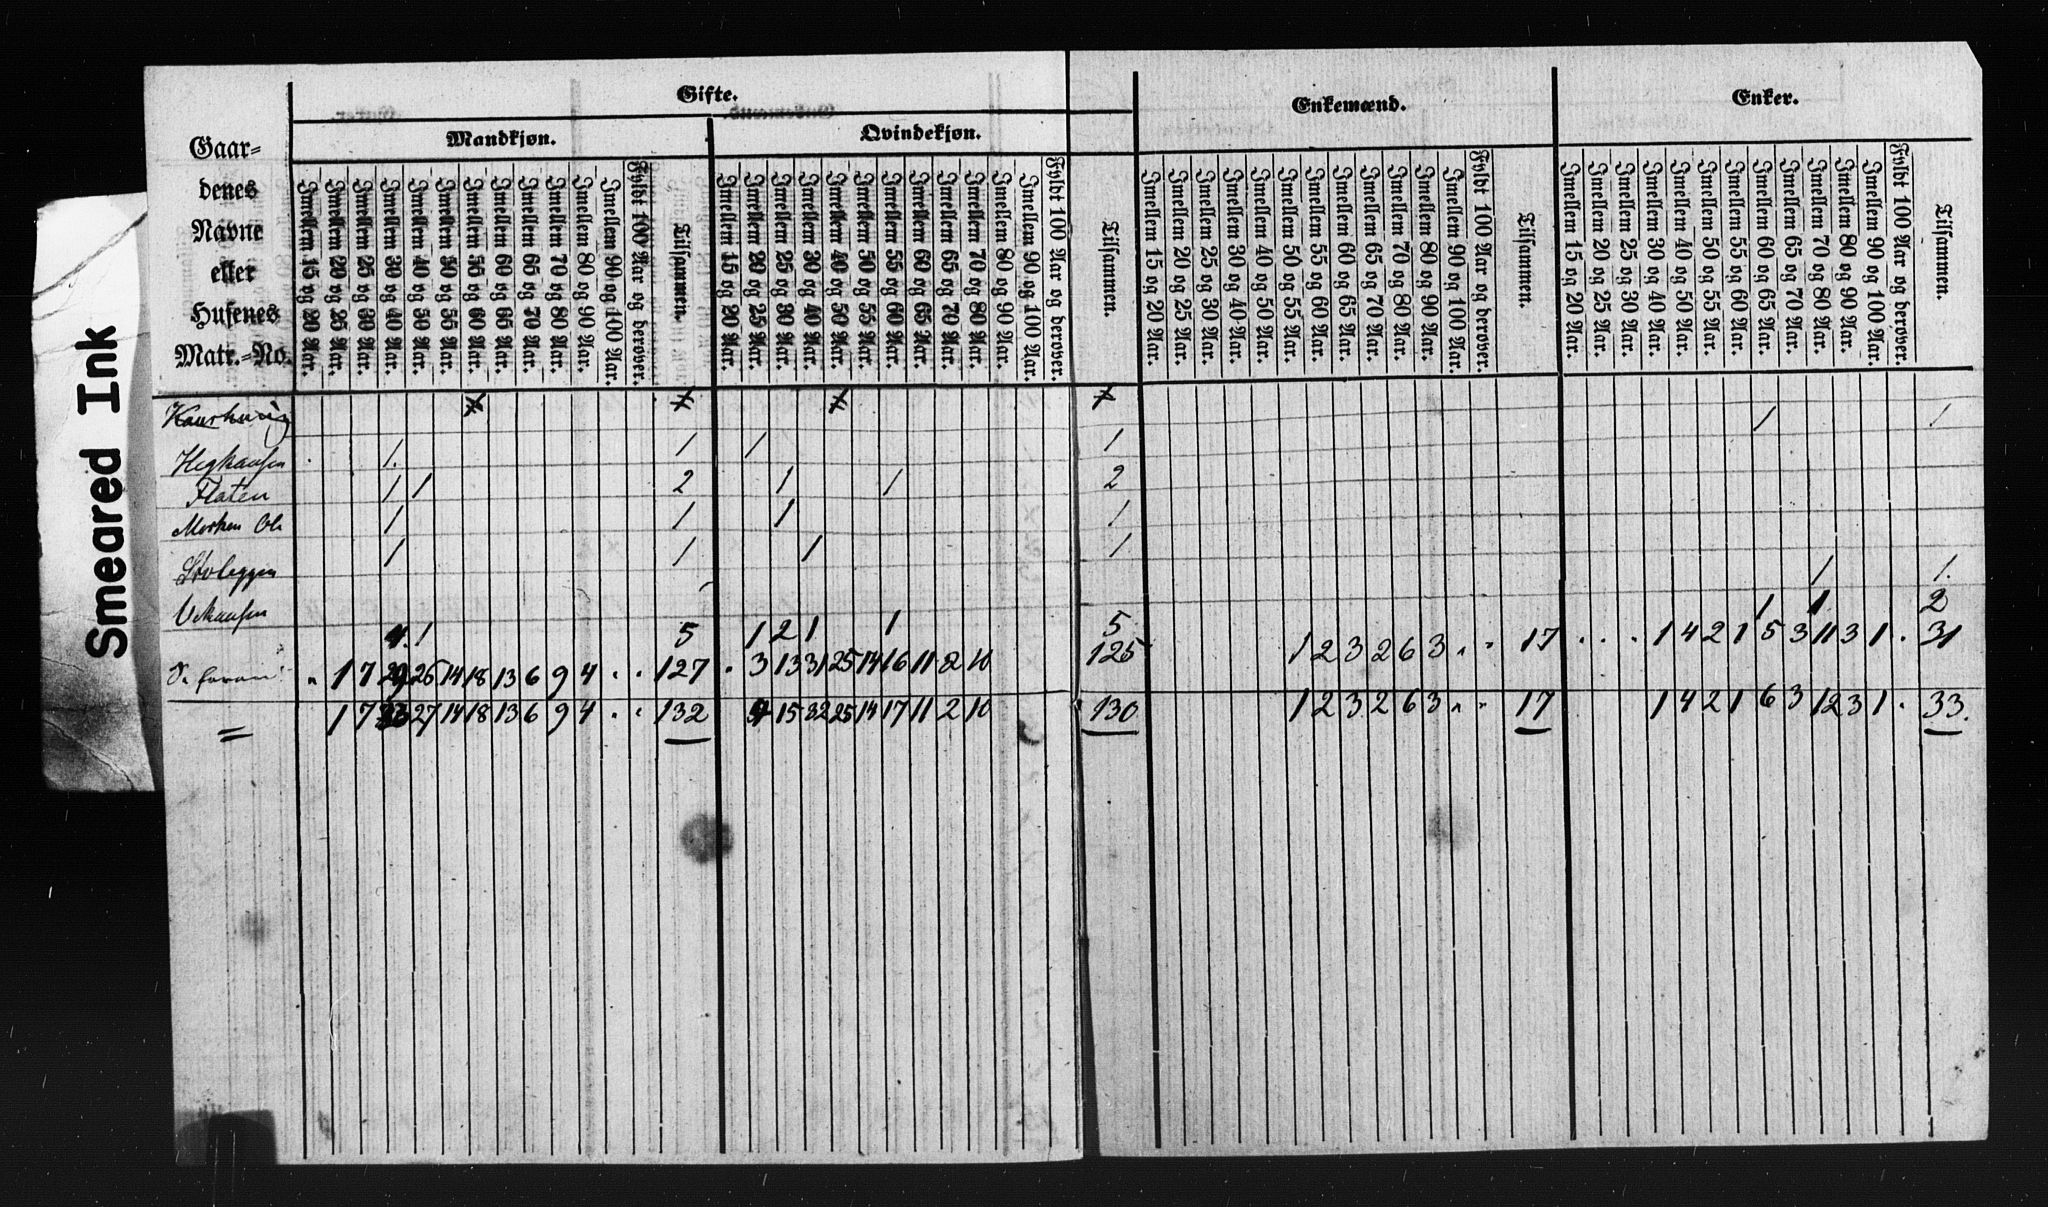 Smeared Ink
Gifte.
Enkemænd.
Enker.
Mandkjøn.
Qvindekjøn.
Gaar-
denes
Navne
eller
Husenes
Matr.-No.
Imellem 15 og 20 Aar.
Imellem 20 og 25 Aar.
Imellem 25 og 30 Aar.
Imellem 30 og 40 Aar.
Imellem 40 og 50 Aar.
Imellem 50 og 55 Aar.
Imellem 55 og 60 Aar.
Imellem 60 og 65 Aar.
Imellem 65 og 70 Aar.
Imellem 70 og 80 Aar.
Imellem 80 og 90 Aar.
Imellem 90 og 100 Aar.
Fyldt 100 Aar og derover.
Tilsammen.
Imellem 15 og 20 Aar.
Imellem 20 og 25 Aar.
Imellem 25 og 30 Aar.
Imellem 30 og 40 Aar.
Imellem 40 og 50 Aar.
Imellem 50 og 55 Aar.
Imellem 55 og 60 Aar.
Imellem 60 og 65 Aar.
Imellem 65 og 70 Aar.
Imellem 70 og 80 Aar.
Imellem 80 og 90 Aar.
Imellem 90 og 100 Aar.
Fyldt 100 Aar og derover.
Tilsammen.
Imellem 15 og 20 Aar.
Imellem 20 og 25 Aar.
Imellem 25 og 30 Aar.
Imellem 30 og 40 Aar.
Imellem 40 og 50 Aar.
Imellem 50 og 55 Aar.
Imellem 55 og 60 Aar.
Imellem 60 og 65 Aar.
Imellem 65 og 70 Aar.
Imellem 70 og 80 Aar.
Imellem 80 og 90 Aar.
Imellem 90 og 100 Aar.
Fyldt 100 Aar og derover.
Tilsammen.
Imellem 15 og 20 Aar.
Imellem 20 og 25 Aar.
Imellem 25 og 30 Aar.
Imellem 30 og 40 Aar.
Imellem 40 og 50 Aar.
Imellem 50 og 55 Aar.
Imellem 55 og 60 Aar.
Imellem 60 og 65 Aar.
Imellem 65 og 70 Aar.
Imellem 70 og 80 Aar.
Imellem 80 og 90 Aar.
Imellem 90 og 100 Aar.
Fyldt 100 Aar og derover.
Tilsammen.
1 1
1 1 1 1
Flaten 1 1 2 1 1 2
1 1 1 1
1 1 1 1 1 1.
1 1 2
4. 1 5 1 2 1 1 5
1 7 29 26 14 18 13 6 9 4 127 3 13 31 25 14 16 11 2 10 125 1 2 3 2 6 3 17 1 4 2 1 5 3 11 3 1 31
1 7 33 27 14 18 13 6 9 4 132 4 15 32 25 14 17 11 2 10 130 1 2 3 2 6 3 17 1 4 2 1 6 3 12 3 1 33.